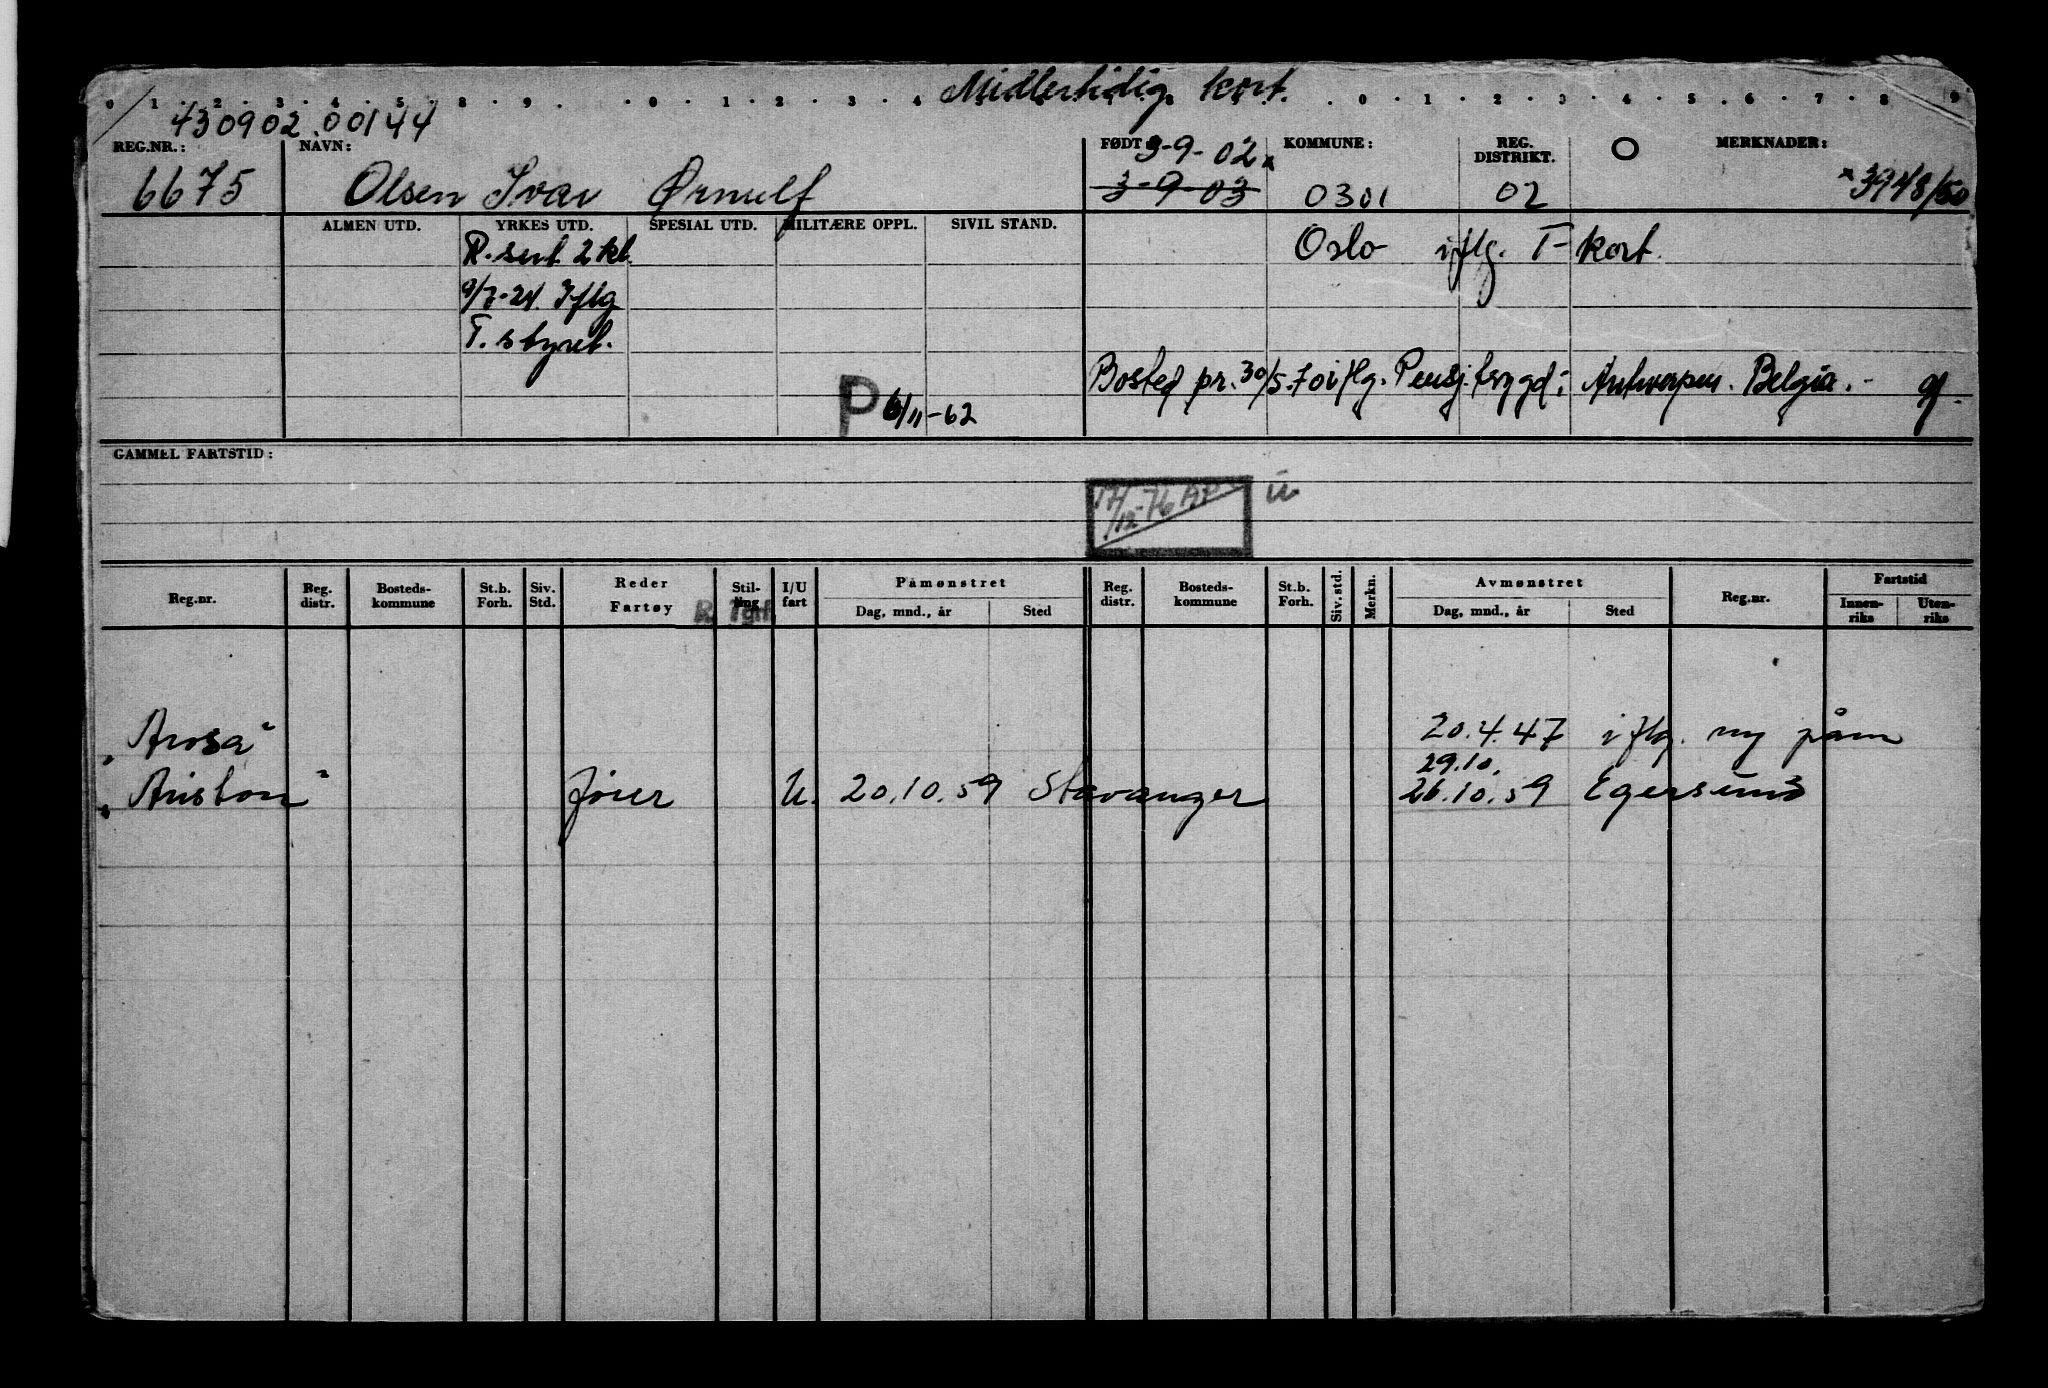 Midlertidig kort.
0 1 2 3 4 5 8 9 0 1 2 3 4 0 1 2 3 4 5 6 7 8 9
430902.00144
REG.NR.: NAVN: FØDT 3-9-02 x KOMMUNE: REG. DISTRIKT. O MERKNADER:
6675 Olsen Ivar Ørnulf 3-9-03 0301 02 x 3948/50
ALMEN UTD. YRKES UTD. SPESIAL UTD. MILITÆRE OPPL. SIVIL STAND.
R. sert. 2 kl. Oslo iflg. T-kort.
9/7-24. Iflg
T. styret.
Bosted pr. 30/5.70 iflg. Pensj.trygd: Antwerpen. Belgia.-
P 6/11-62
GAMMEL FARTSTID:
17/12-76
Reg.nr. Reg. distr. Bosteds-kommune St.b. Forh. Siv. Std. Reder Fartøy Stil-ling I/U fart Påmønstret Dag, mnd., år Sted Reg. distr. Bosteds-kommune St.b. Forh. Siv. std. Merkn. Avmønstret Dag, mnd., år Sted Reg.nr. Fartstid Innen-riks Uten-riks
"Arosa" 20.4.47 iflg. ny påm
29.10.
"Ariston" Jøier U. 20.10.59 Stavanger 26.10.59 Egersund